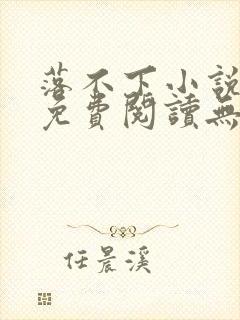 落不下小說
免費閱讀無
任晨溪